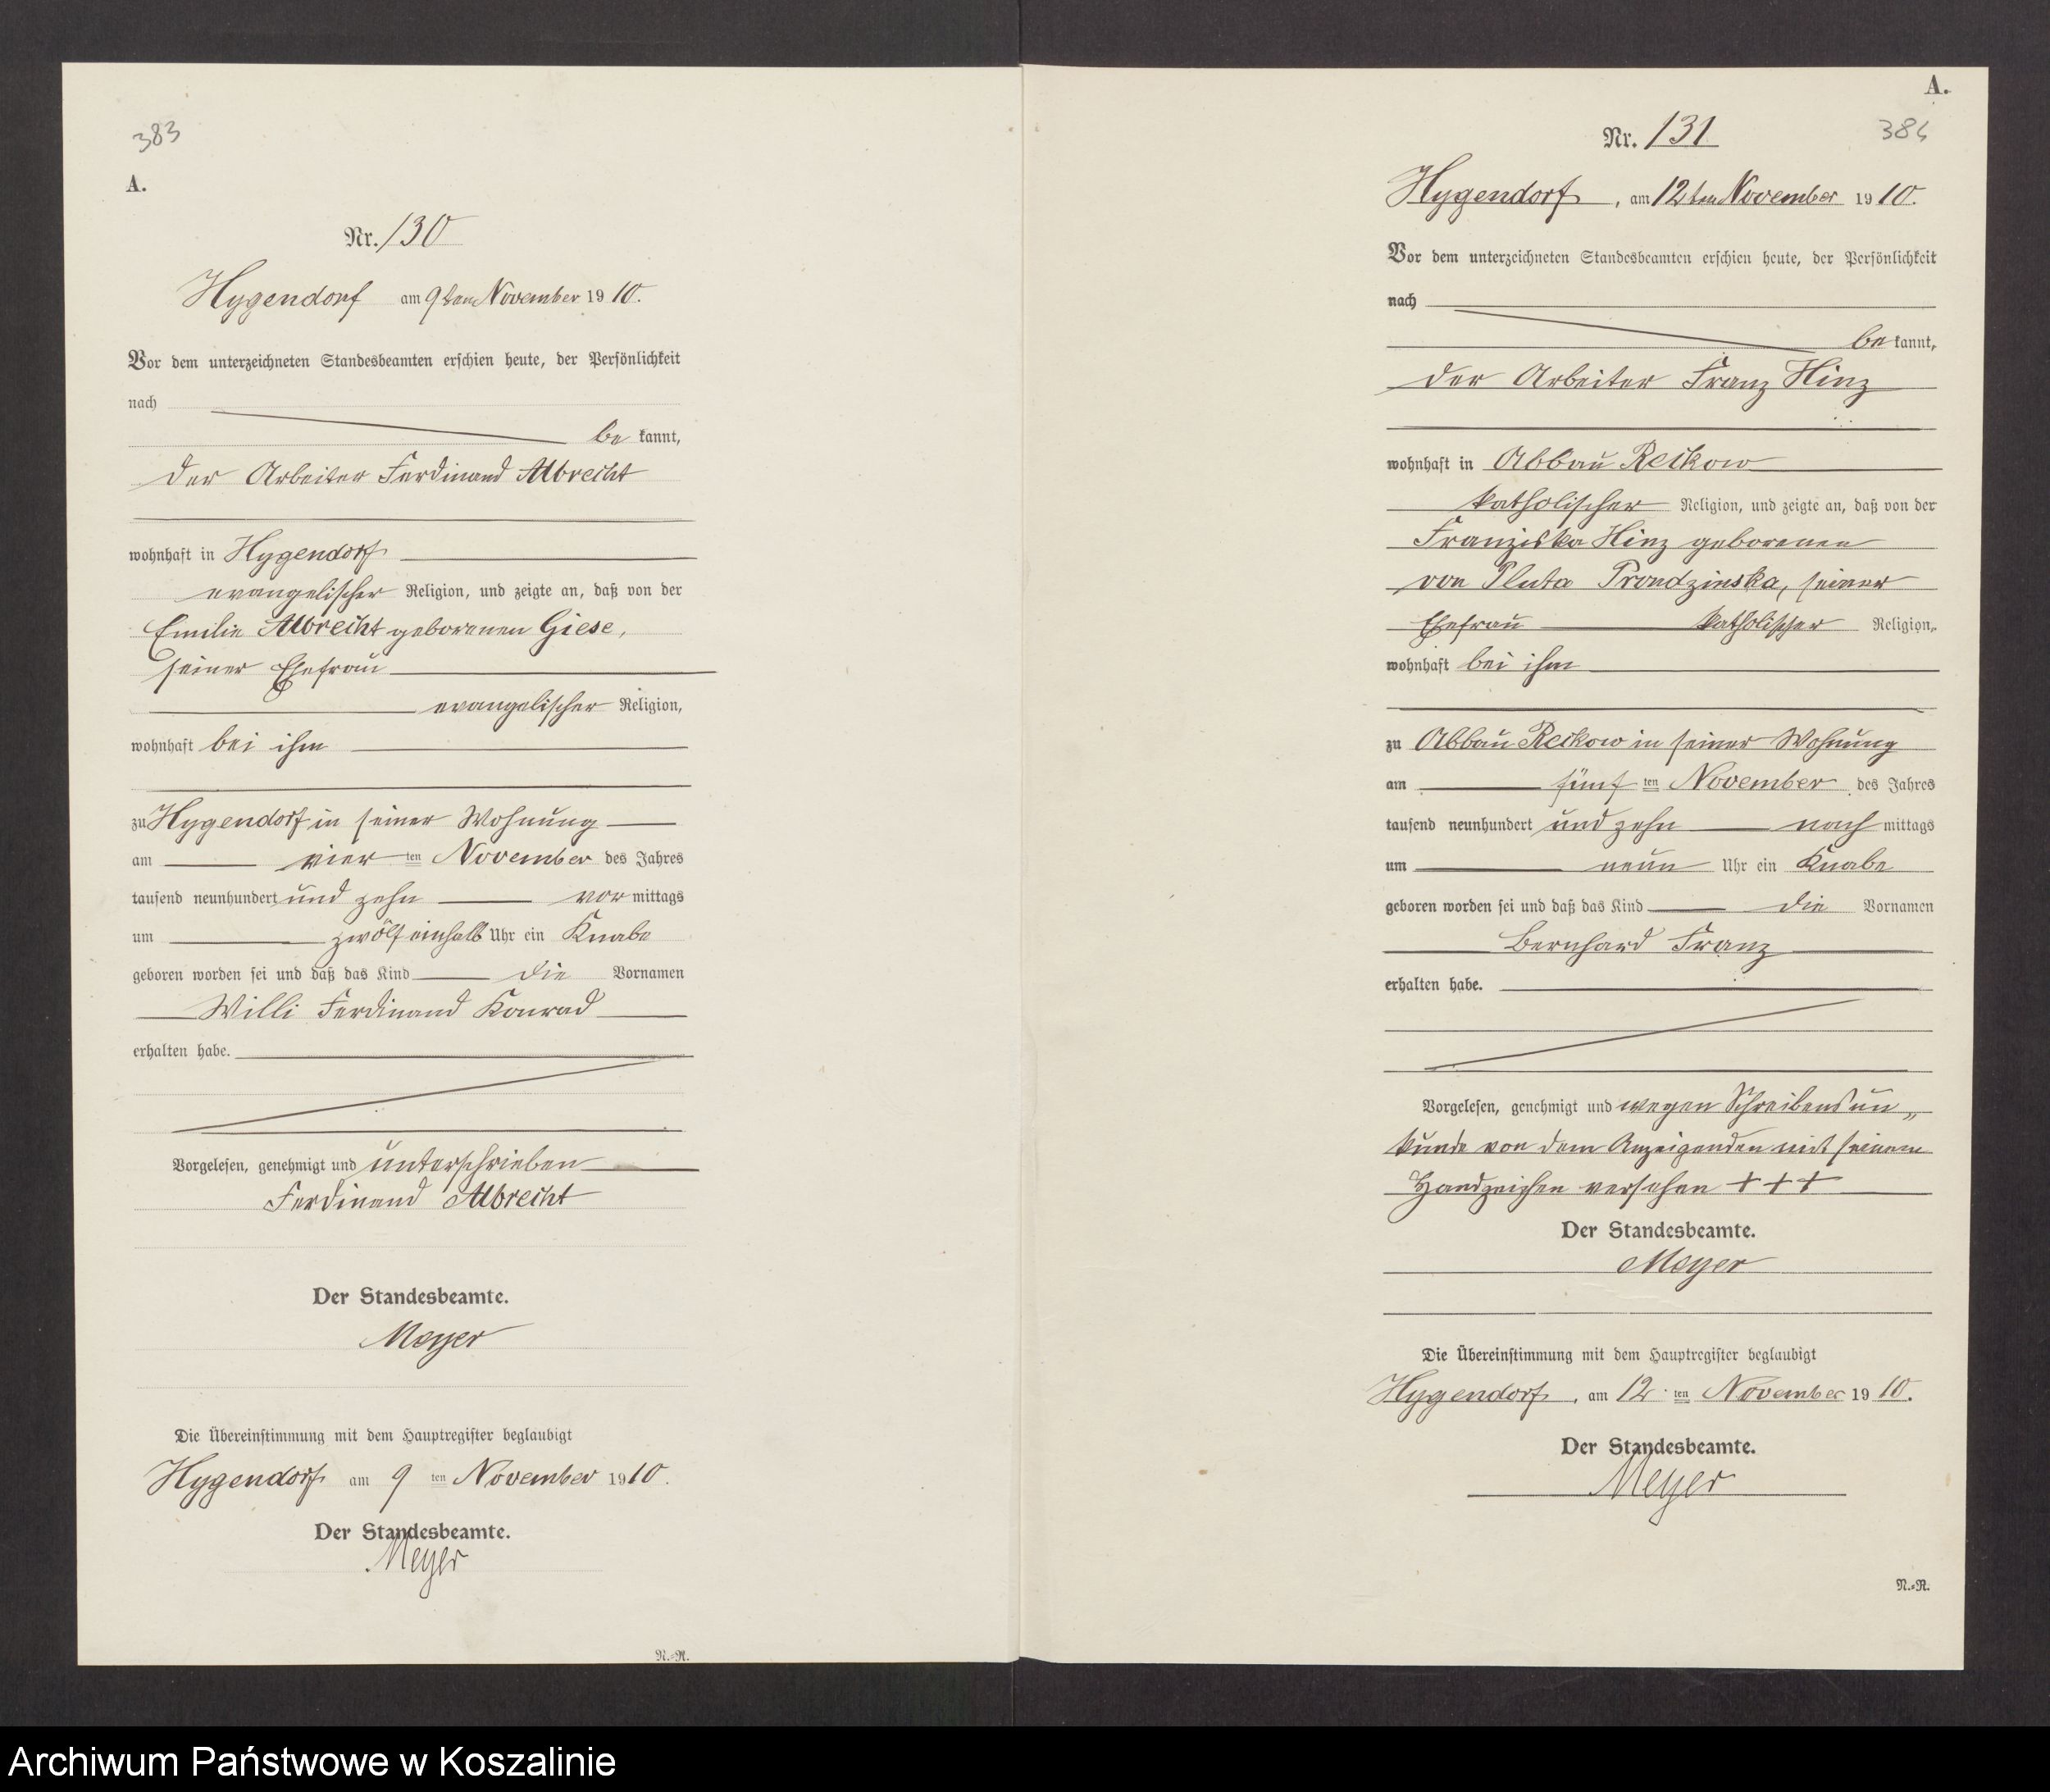 383
A.
Nr. 130
Hygendorf am 9ten November 1910.
Vor dem unterzeichneten Standesbeamten erschien heute, der Persönlichkeit
nach
be kannt,
der Arbeiter Ferdinand Albrecht
wohnhaft in Hygendorf
evangelischer Religion, und zeigte an, daß von der
Emilie Albrecht geborenen Giese,
seiner Ehefrau
evangelischer Religion,
wohnhaft bei ihm
zu Hygendorf in seiner Wohnung
am vier ten November des Jahres
tausend neunhundert und zehn vor mittags
um zwölf einhalb Uhr ein Knabe
geboren worden sei und daß das Kind die Vornamen
Willi Ferdinand Konrad
erhalten habe.
Vorgelesen, genehmigt und unterschrieben
Ferdinand Albrecht
Der Standesbeamte.
Meyer
Die Übereinstimmung mit dem Hauptregister beglaubigt
Hygendorf am 9 ten November 1910.
Der Standesbeamte.
Meyer
N.-R.
A.
384
Nr. 131
Hygendorf, am 12ten November 1910.
Vor dem unterzeichneten Standesbeamten erschien heute, der Persönlichkeit
nach
be kannt,
der Arbeiter Franz Hinz
wohnhaft in Abbau Reckow
katholischer Religion, und zeigte an, daß von der
Franziska Hinz geborenen
von Pluta Prondzinska, seiner
Ehefrau katholischer Religion,
wohnhaft bei ihm
zu Abbau Reckow in seiner Wohnung
am fünf ten November des Jahres
tausend neunhundert und zehn nach mittags
um neun Uhr ein Knabe
geboren worden sei und daß das Kind die Vornamen
Bernhard Franz
erhalten habe.
Vorgelesen, genehmigt und wegen Schreibensun„
kunde von dem Anzeigenden mit seinem
Handzeichen versehen + + +
Der Standesbeamte.
Meyer
Die Übereinstimmung mit dem Hauptregister beglaubigt
Hygendorf, am 12 ten November 1910.
Der Standesbeamte.
Meyer
N.-R.
Archiwum Państwowe w Koszalinie